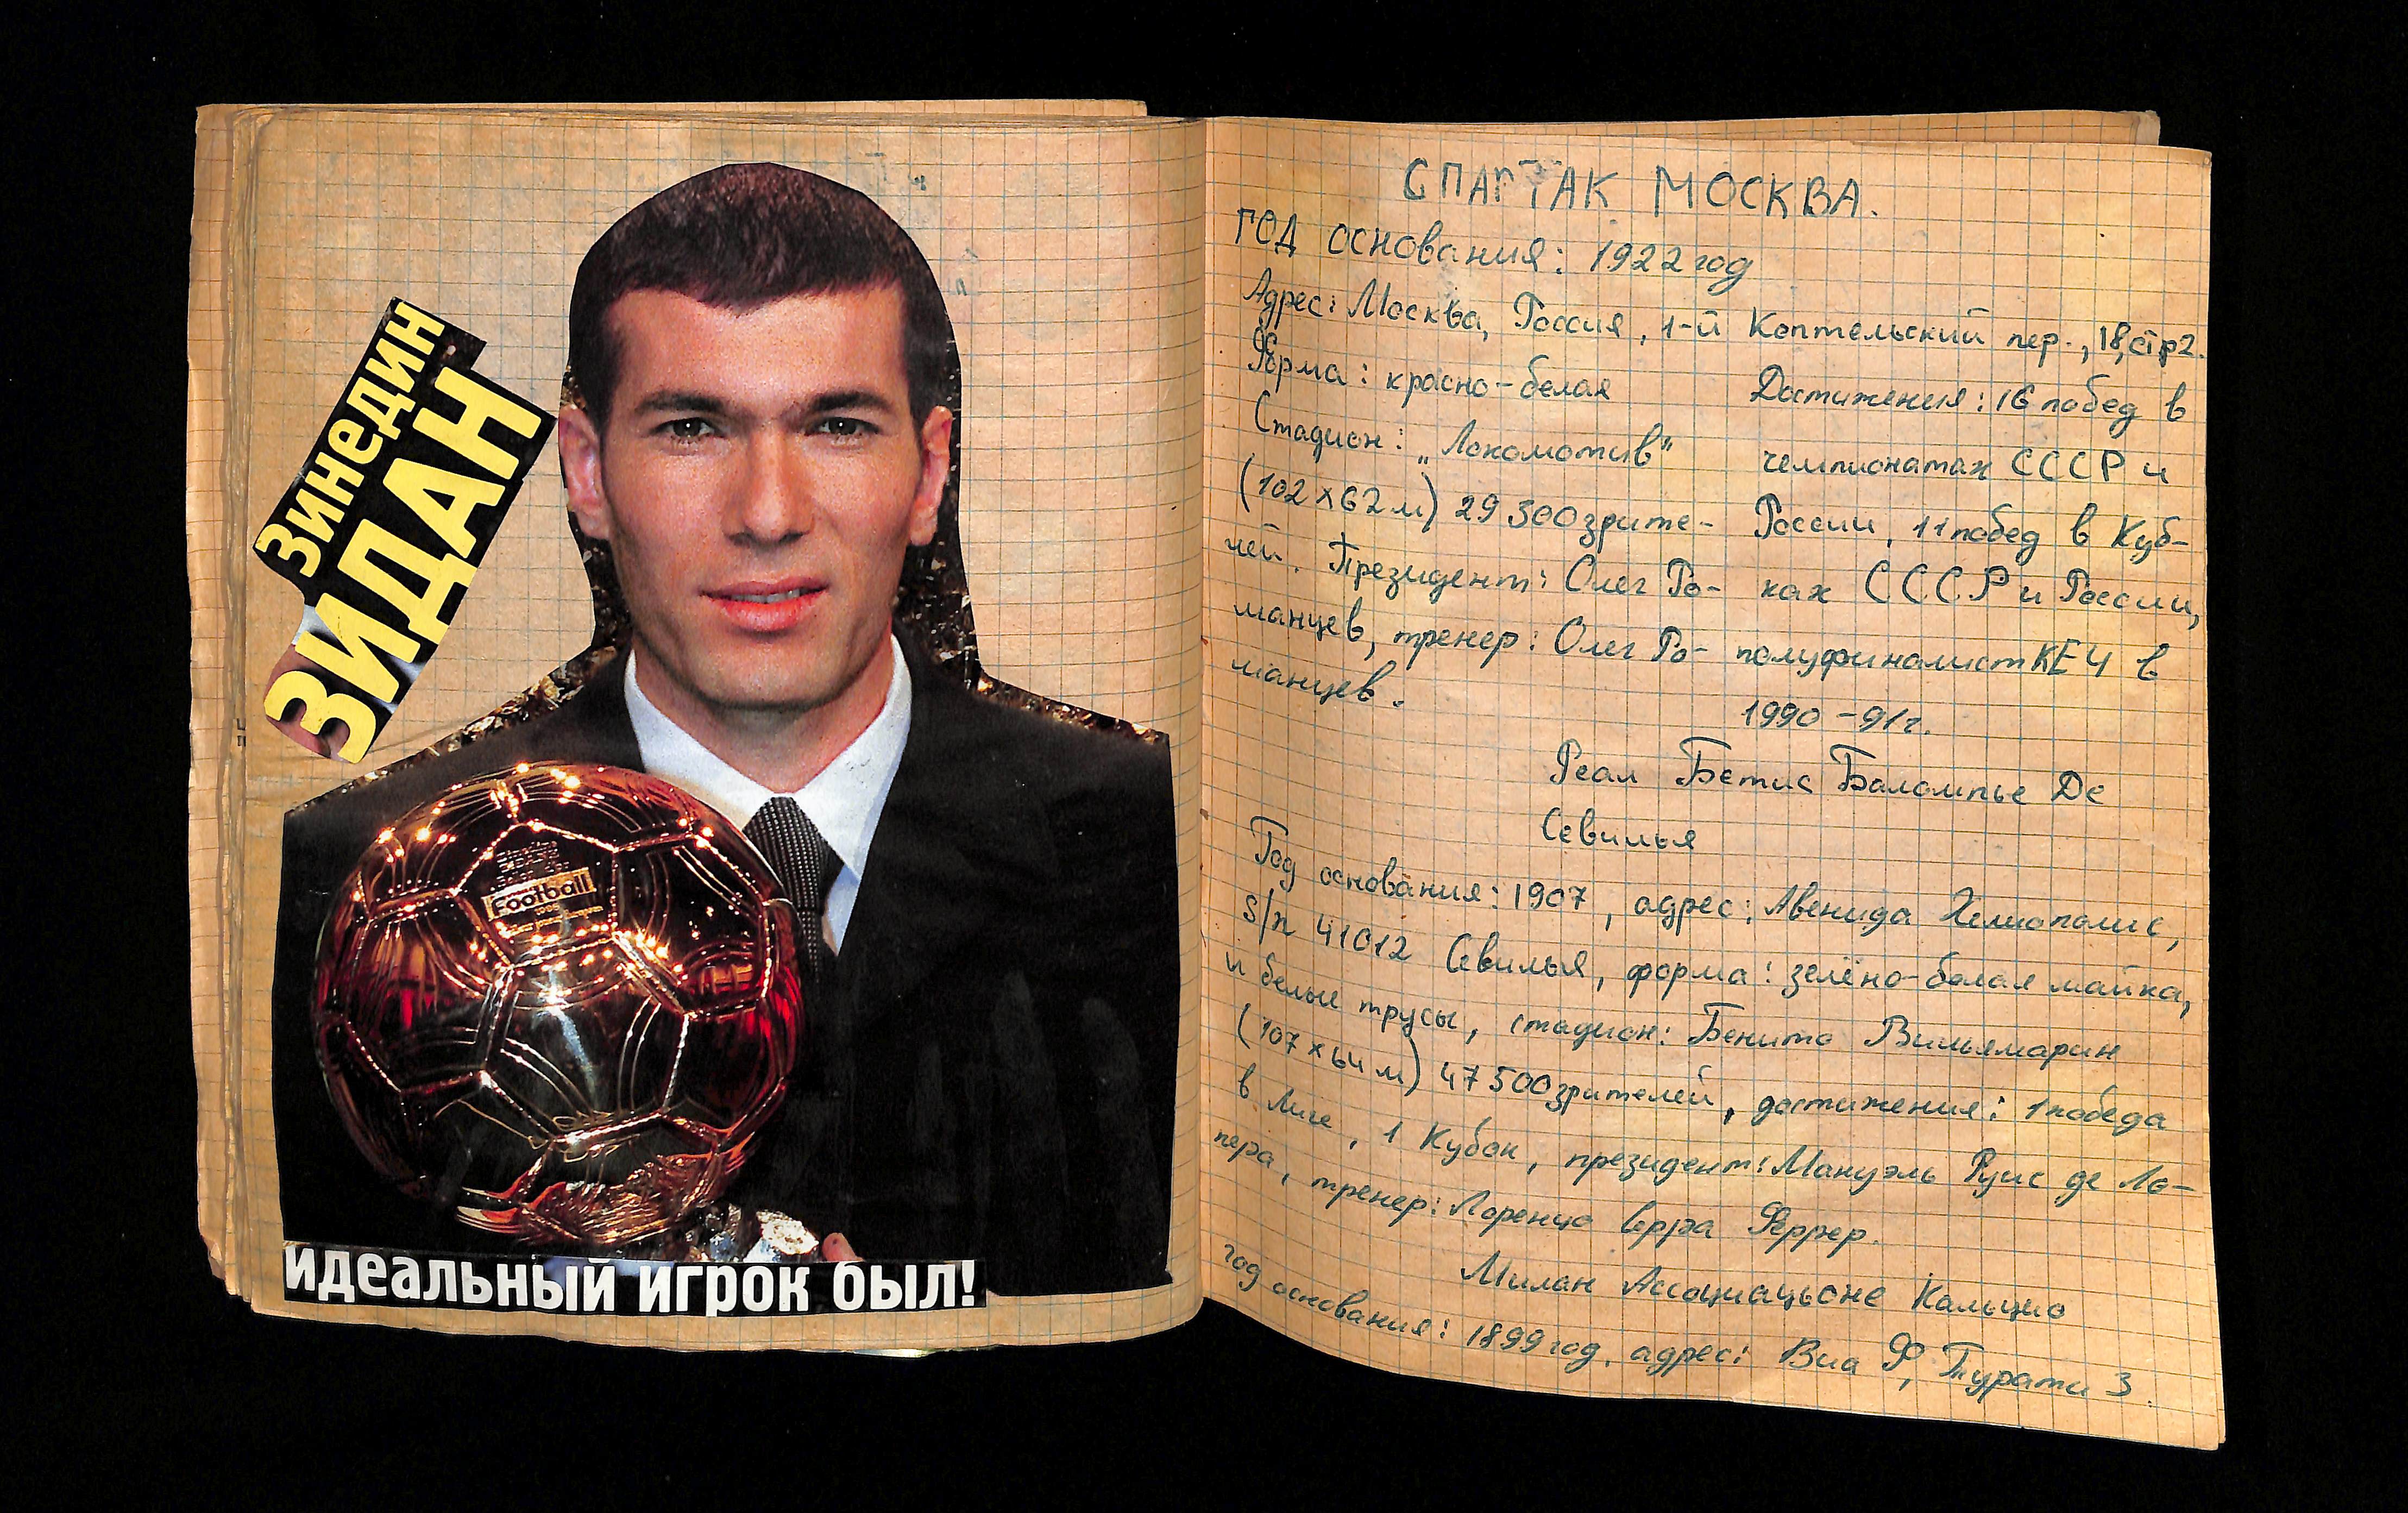 Зинедин
ЗИДАН
Football
идеальный игрок был!
СПАРТАК МОСКВА.
ГОД основания: 1922 год
Адрес: Москва, Россия, 1-й Коптельский пер., 18, стр 2.
Форма: красно-белая
Стадион: „Локомотив"
(102 х 62 м) 29 300 зрите-
лей. Президент: Олег Ро-
манцев, тренер: Олег Ро-
манцев.
Достижения: 16 побед в
чемпионатах СССР и
России, 11 побед в Куб-
ках СССР и России,
полуфиналист КЕЧ в
1990-91г.
Реал Бетис Баломпье Де
Севилья
Год основания: 1907, адрес: Авенида Хелиополис,
s/n 41012 Севилья, форма: зелёно-белая майка,
и белые трусы, стадион: Бенито Вильямарин
(107 х 64 м) 47 500 зрителей, достижения: 1 победа
в Лиге, 1 Кубок, президент: Мануэль Руис де Ло-
пера, тренер: Лоренцо Серра Феррер.
Милан Ассоциацьоне Кальцио
год основания: 1899 год, адрес: Виа Ф, Турати 3.